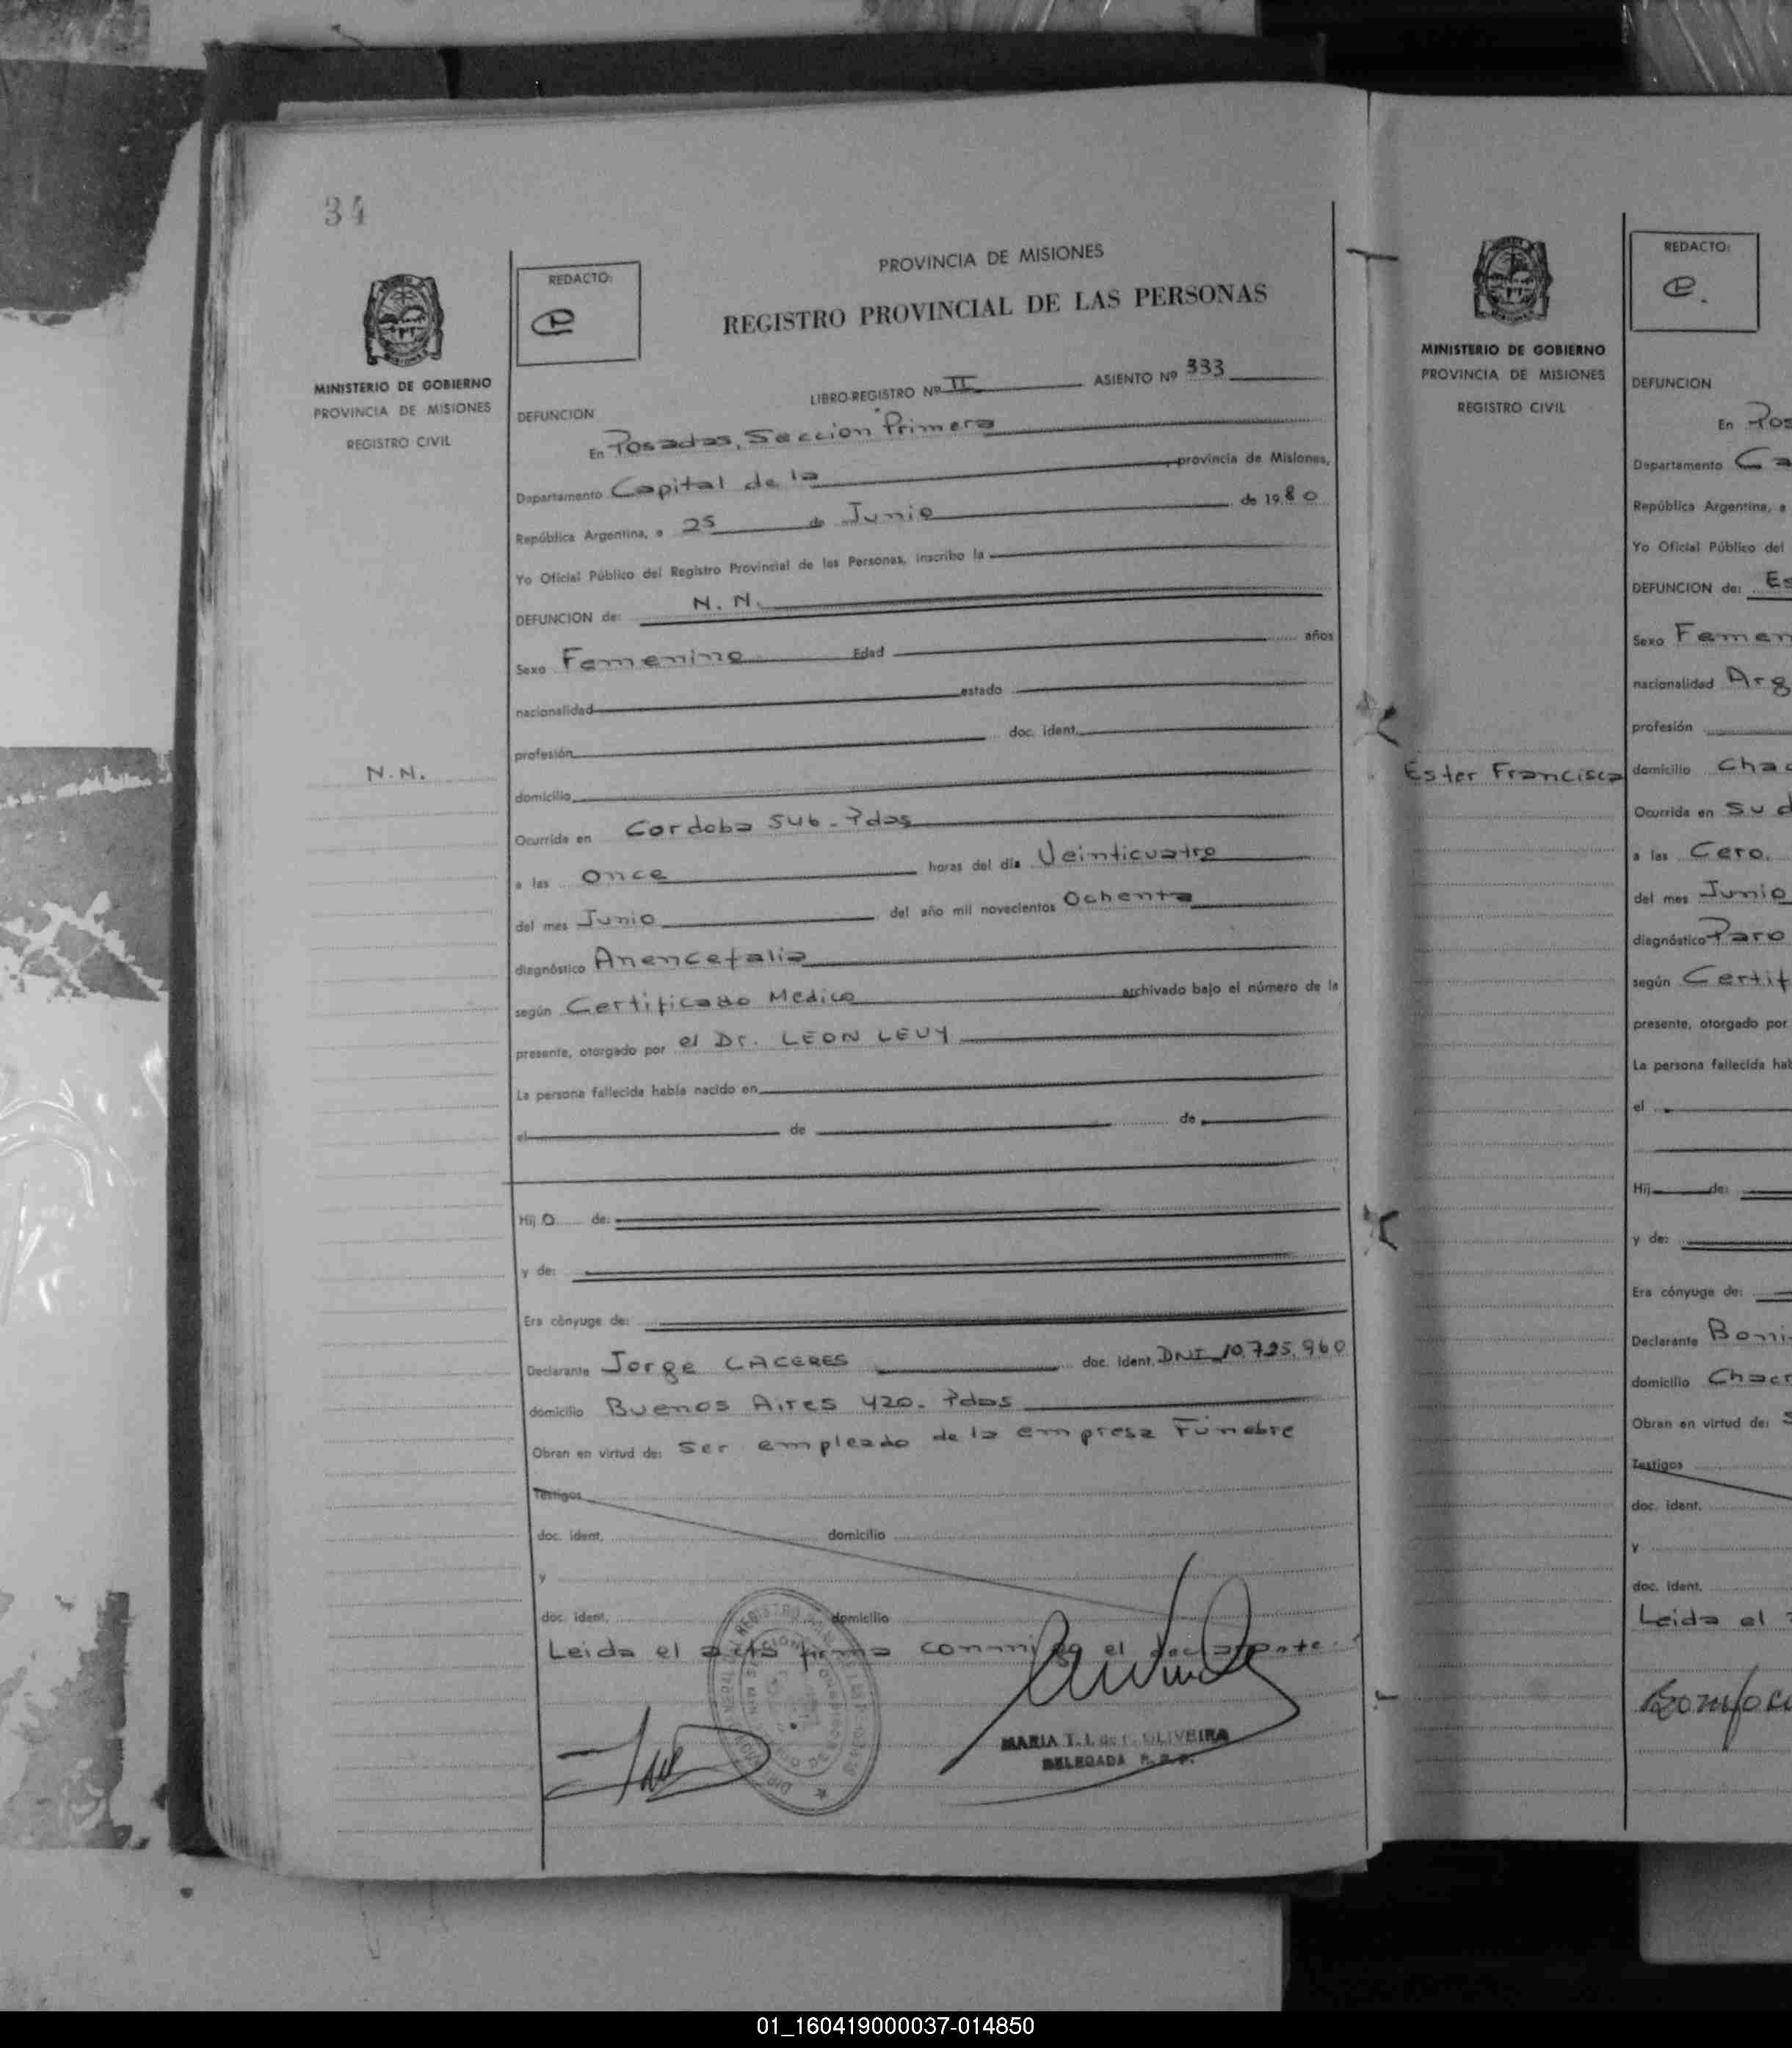 34
MINISTERIO DE GOBIERNO
PROVINCIA DE MISIONES
REGISTRO CIVIL
N.N.
REDACTO:
PROVINCIA DE MISIONES
REGISTRO PROVINCIAL DE LAS PERSONAS
LIBRO-REGISTRO Nº II ASIENTO Nº 333
DEFUNCION
En Posadas, Sección Primera
Departamento Capital de la , provincia de Misiones,
República Argentina, a 25 de Junio de 1980
Yo Oficial Público del Registro Provincial de las Personas, inscribo la
DEFUNCION de: N. N.
Sexo Femenino Edad años
nacionalidad estado
profesión doc. ident.
domicilio
Ocurrida en Cordoba 546 - Pdas
a las Once horas del día Veinticuatro
del mes Junio del año mil novecientos Ochenta
diagnóstico Anencefalia
según Certificado Medico archivado bajo el número de la
presente, otorgado por el Dr. LEON LEVY
La persona fallecida había nacido en
el de de
Hij o de:
y de:
Era cónyuge de:
Declarante Jorge CACERES doc. ident. DNI 10.725.960
domicilio Buenos Aires 420. Pdas
Obran en virtud de: Ser empleado de la empresa Fúnebre
Testigos
doc. ident. domicilio
y
doc. ident. domicilio
Leida el acta firma conmigo el declarante.
MARIA T. I. de OLIVEIRA
DELEGADA R. P. P.
MINISTERIO DE GOBIERNO
PROVINCIA DE MISIONES
REGISTRO CIVIL
Ester Francisca
REDACTO:
DEFUNCION
En Pos
Departamento Ca
República Argentina, a
Yo Oficial Público del
DEFUNCION de: Es
Sexo Femen
nacionalidad Arg
profesión
domicilio Chac
Ocurrida en Su d
a las Cero.
del mes Junio
diagnóstico Paro
según Certif
presente, otorgado por
La persona fallecida hab
el
Hij de:
y de:
Era cónyuge de:
Declarante Boni
domicilio Chacr
Obran en virtud de: S
Testigos
doc. ident.
y
doc. ident.
Leida el
01_160419000037-014850